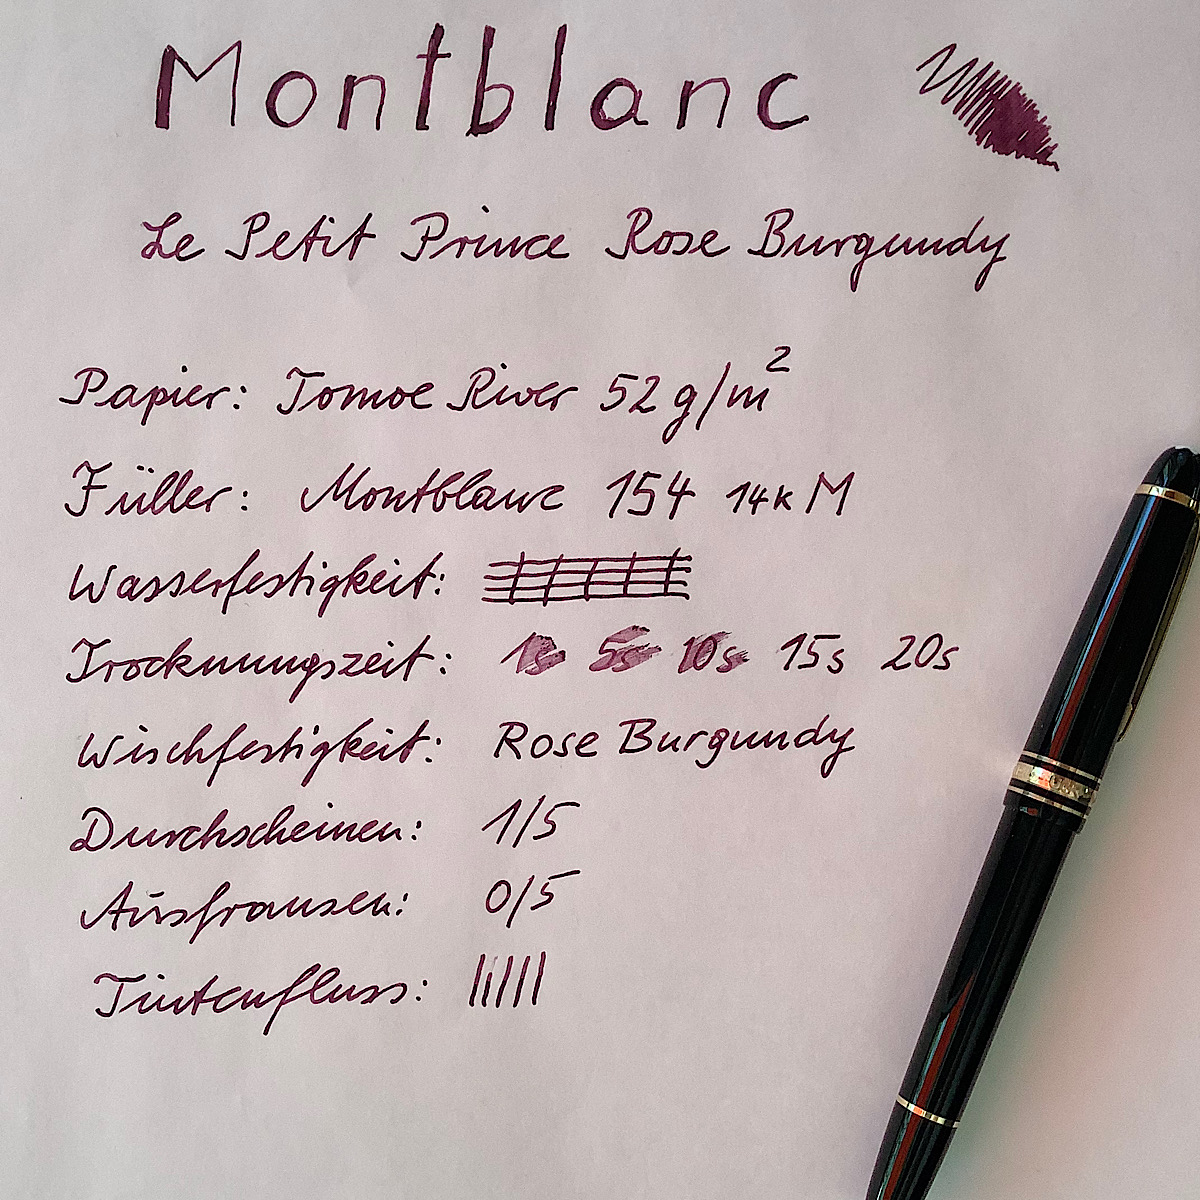 Montblanc
Le Petit Prince Rose Burgundy
Papier: Tomoe River 52 g/m²
Füller: Montblanc 154 14k M
Wasserfestigkeit:
Trocknungszeit: 1s 5s 10s 15s 20s
Wischfestigkeit: Rose Burgundy
Durchscheinen: 1/5
Ausfransen: 0/5
Tintenfluss: